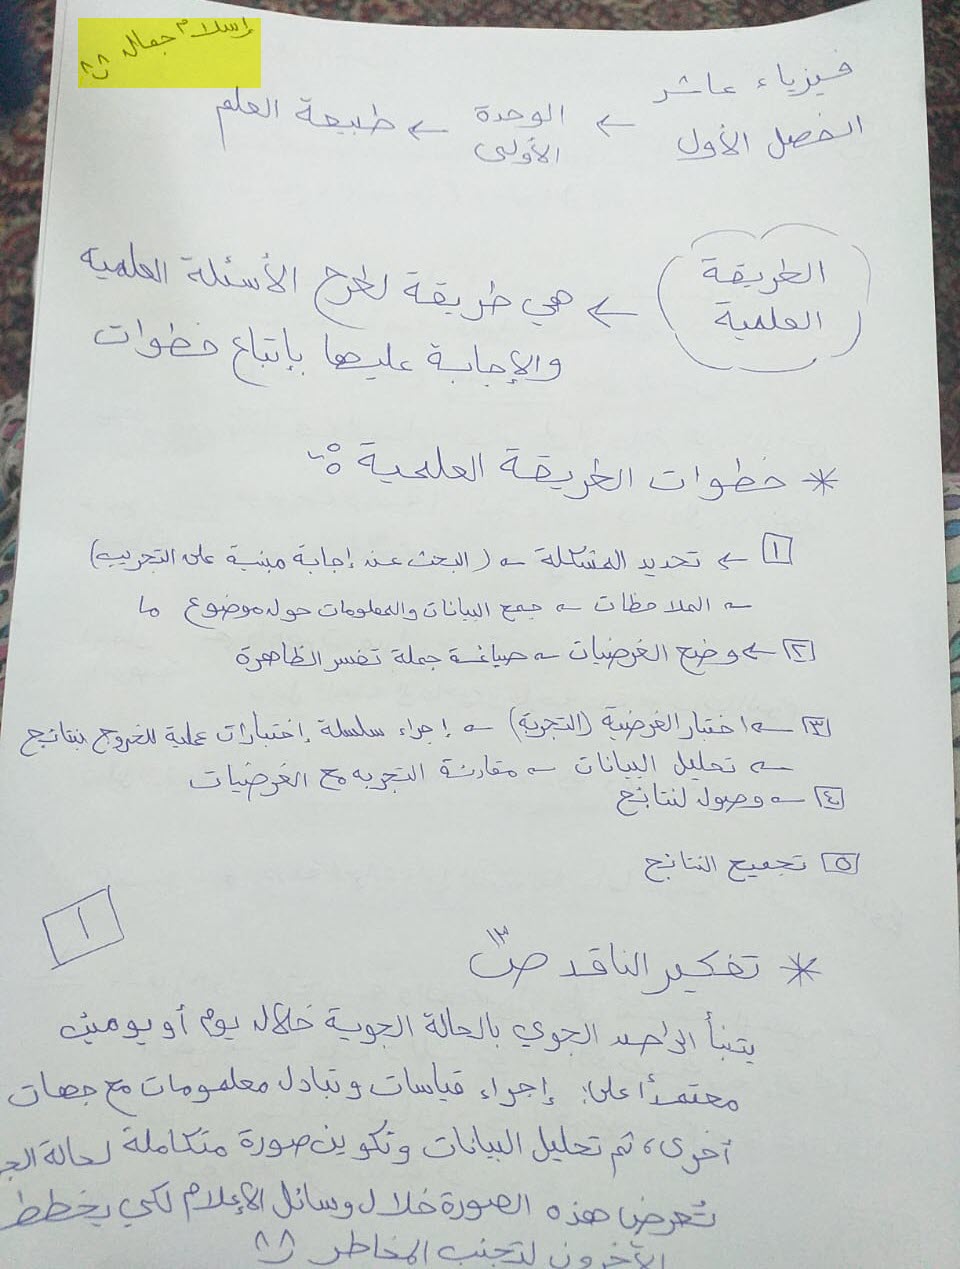 إسلام جمال
فيزياء عاشر
الفصل الأول ← الوحدة الأولى ← طبيعة العلم
الطريقة العلمية ← هي طريقة لطرح الأسئلة العلميه
والإجابة عليها بإتباع خطوات
* خطوات الطريقة العلمية :-
١ ← تحديد المشكلة ← (البحث عند إجابة مبنية على التجريب)
← الملاحظات ← جمع البيانات والمعلومات حول موضوع ما
٢ ← وضع الفرضيات ← صياغة جملة تفسر الظاهرة
٣ ← اختبار الفرضية (التجربة) ← إجراء سلسلة إختبارات عملية للخروج بنتائج
← تحليل البيانات ← مقارنة التجربه مع الفرضيات
٤ ← وصول لنتائج
٥ تجميع النتائج
١
* تفكير الناقد ص١٣
يتنبأ الراصد الجوي بالحالة الجوية خلال يوم أو يومين
معتمداً على: إجراء قياسات وتبادل معلومات مع جهات
أخرى، ثم تحليل البيانات وتكوين صورة متكاملة لحالة الجو
تُعرض هذه الصورة خلال وسائل الإعلام لكي يخطط
الآخرون لتجنب المخاطر